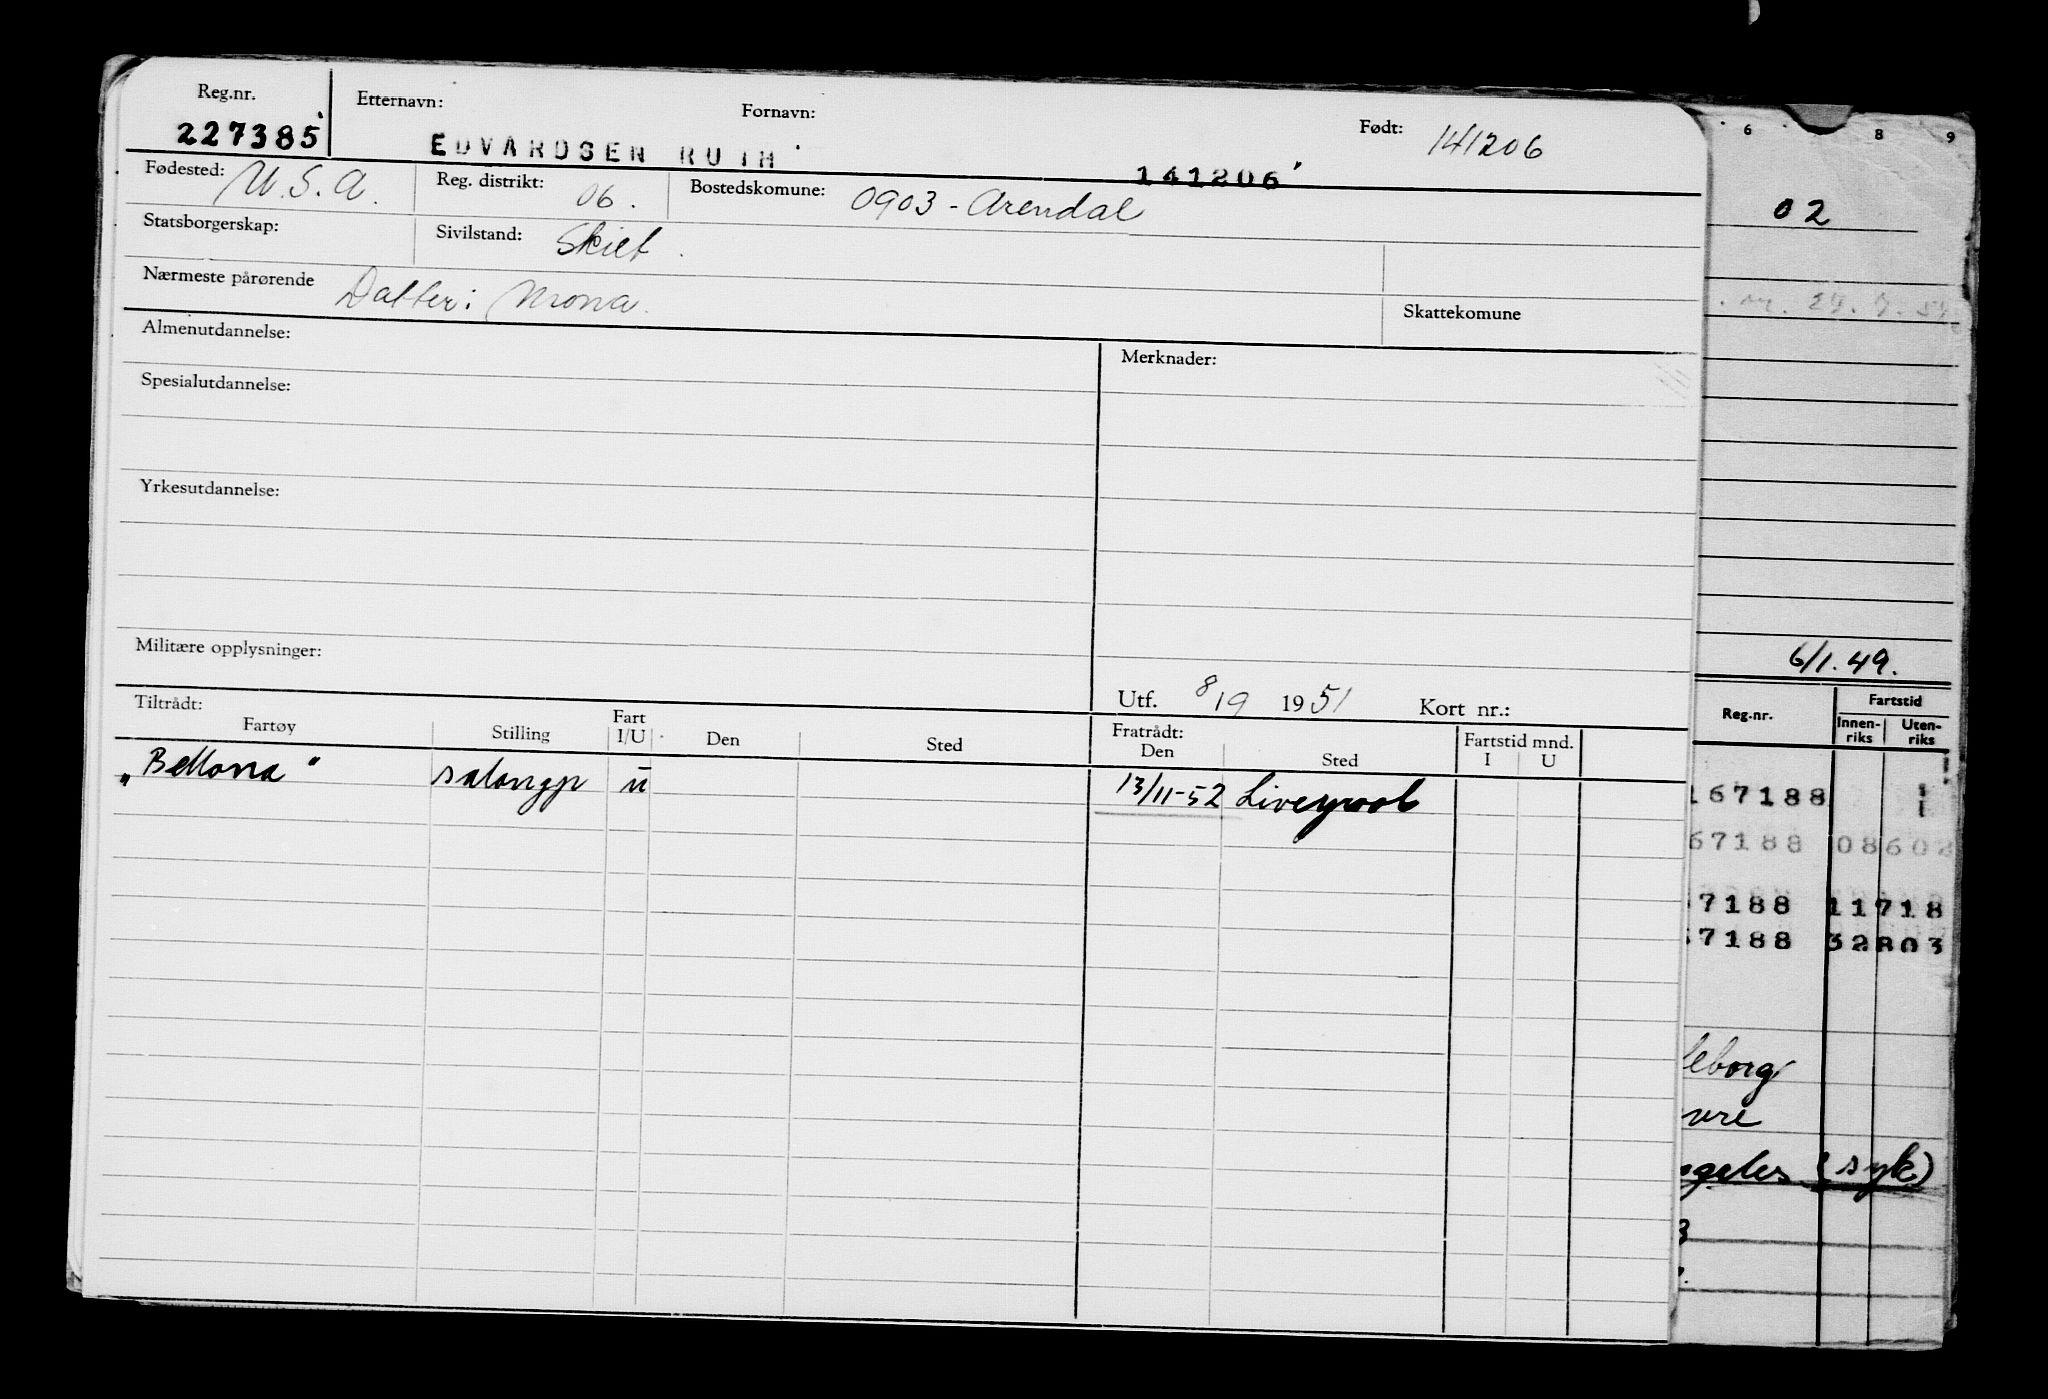 Reg.nr. Etternavn: Fornavn: Født: 141206
227385 EDVARDSEN RUTH 141206
Fødested: U.S.A. Reg. distrikt: 06. Bostedskomune: 0903 - Arendal
Statsborgerskap: Sivilstand: Skilt.
Nærmeste pårørende Datter: Mona. Skattekomune
Almenutdannelse: Merknader:
Spesialutdannelse:
Yrkesutdannelse:
Militære opplysninger:
Utf. 8/9 1951 Kort nr.:
Tiltrådt: Fratrådt:
Fartøy Stilling Fart I/U Den Sted Den Sted Fartstid mnd. I U
„Bellona" salongp u 13/11-52 Liverpool
6 8 9
02
6/1.49.
Reg.nr. Fartstid
Innen-riks Uten-riks
167188
67188 08602
7188 11718
7188 32803
leborg
vre
ngeles (syk)